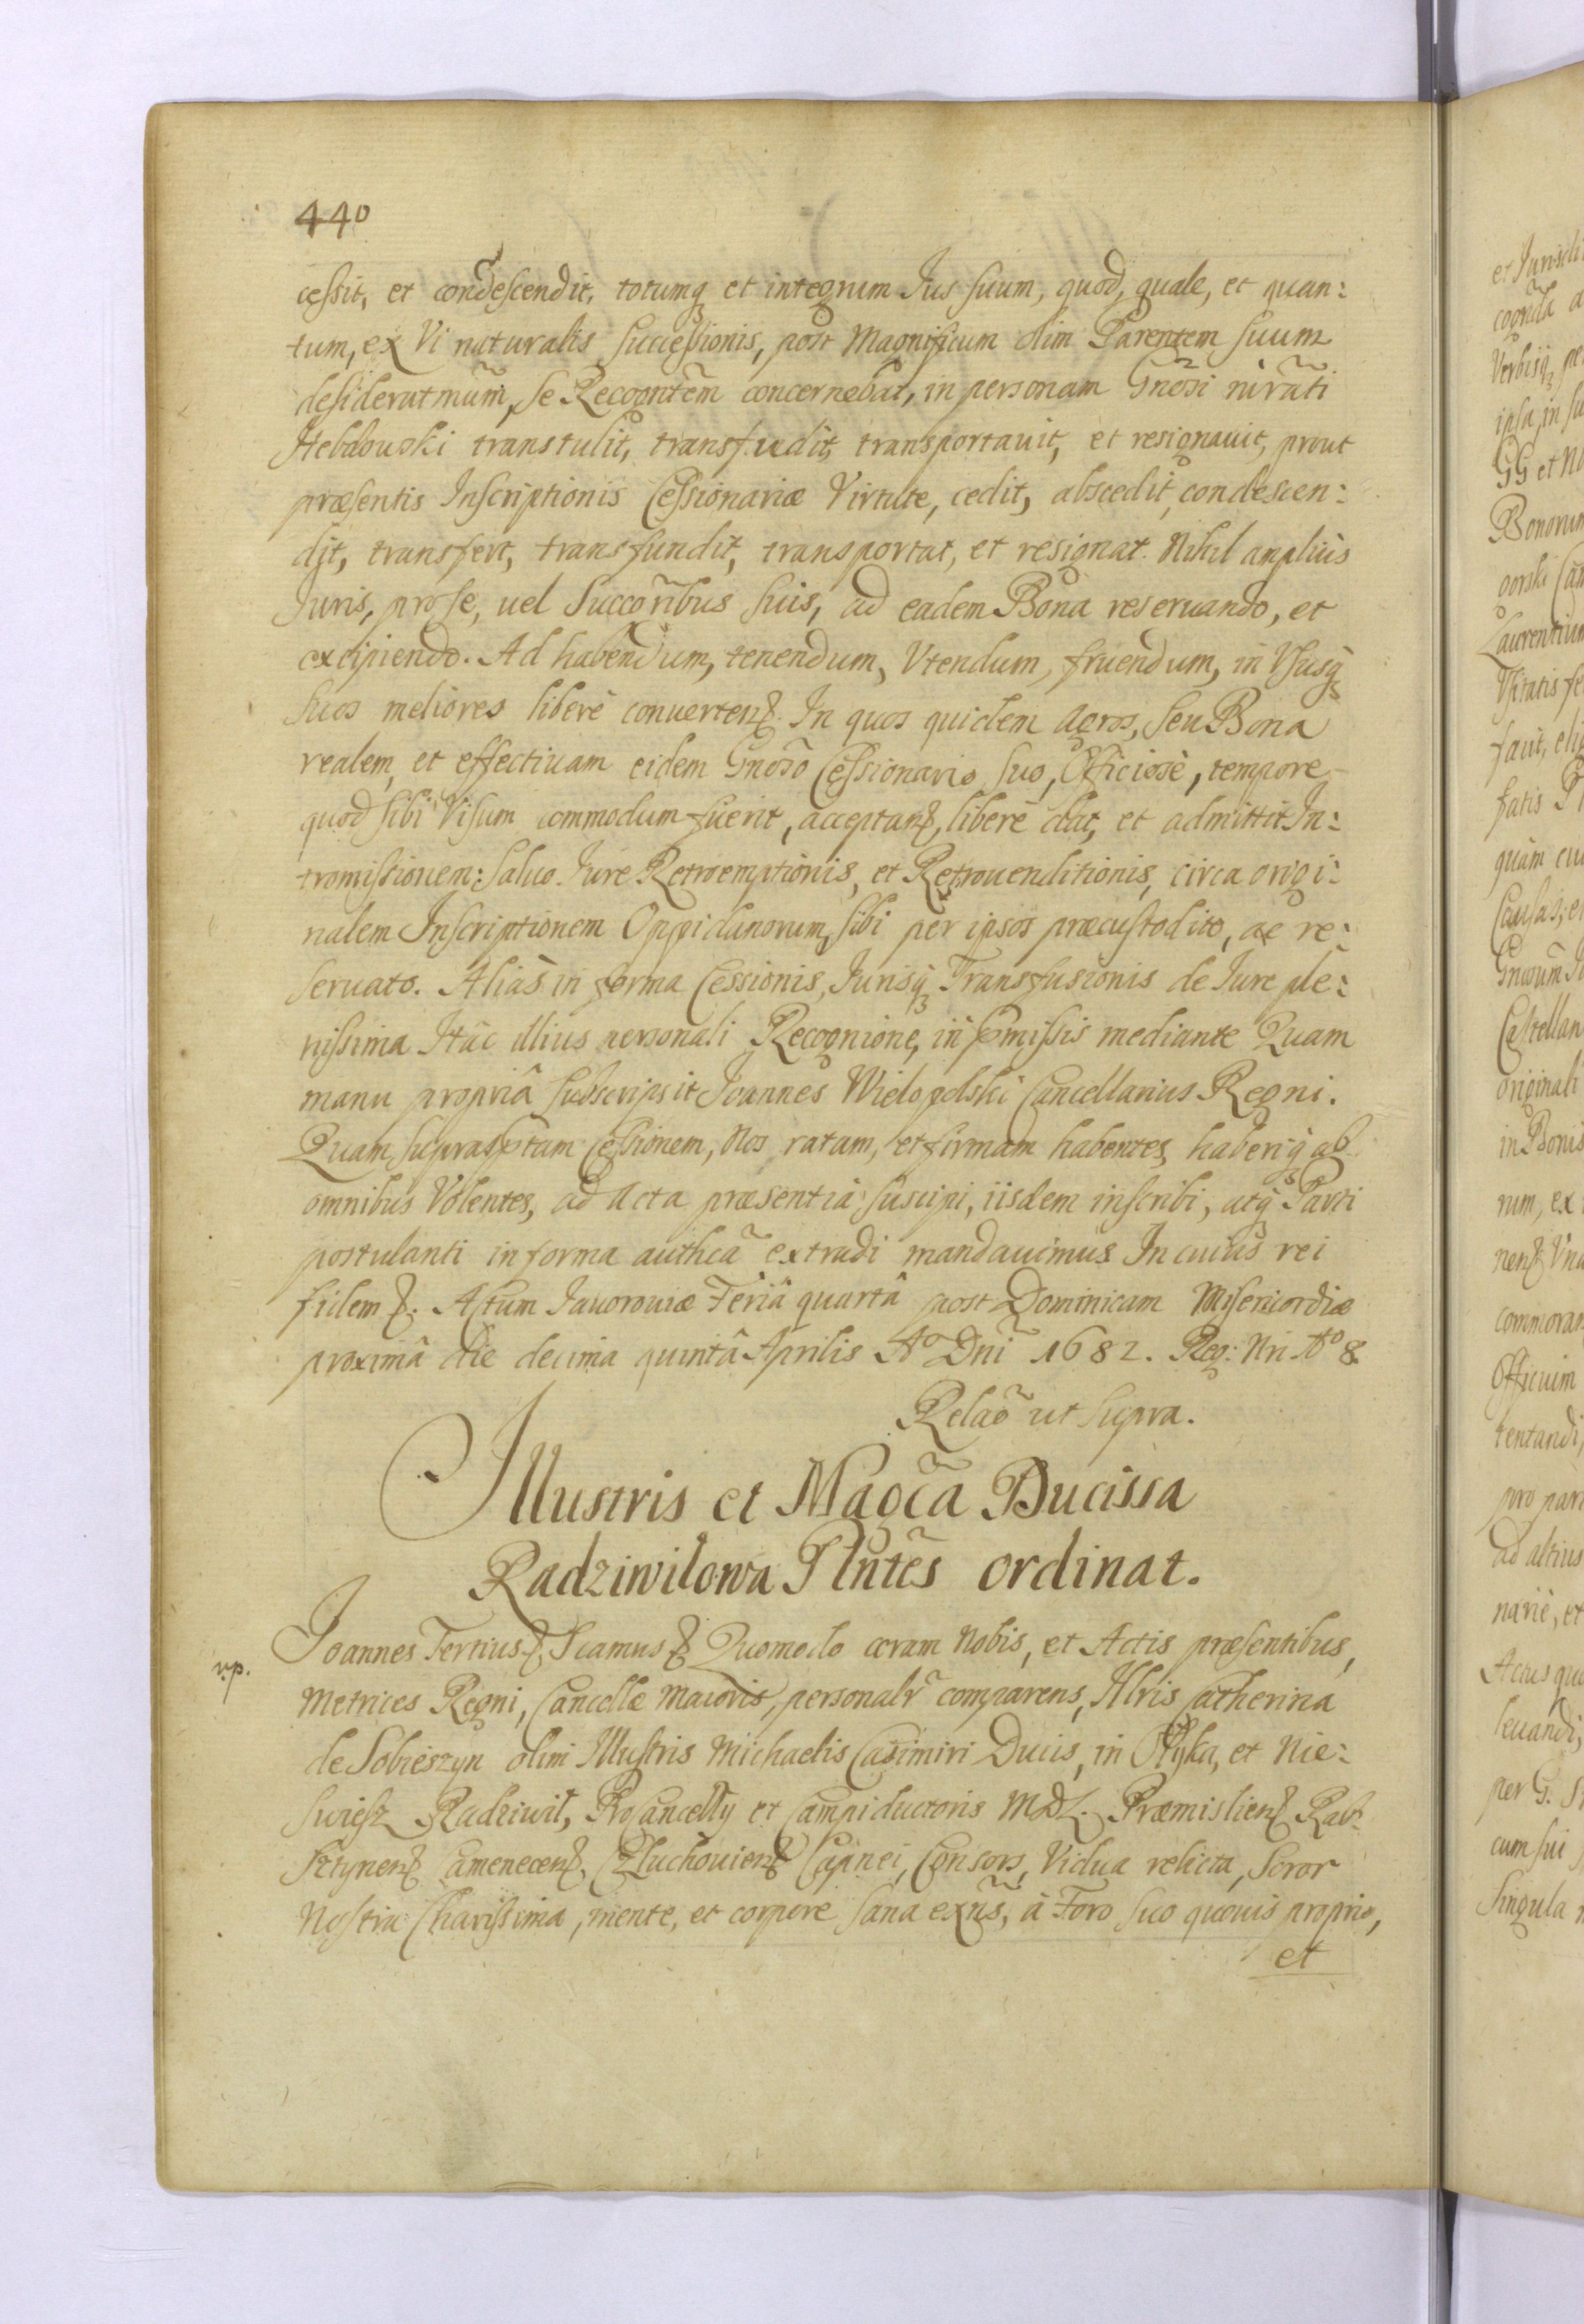 440
cessit, et condescendit, totumq et integrum Jus suum, quod, quale, et quan:
tum, ex Vi naturalis successionis, post Magnificum olim Parentem suum
desideratmum, se Recogntem concernebat, in personam Gnosi
Hebdowski transtulit, transfudit, transportavit, et resignavit, prout
præsentis Inscriptionis Cessionariæ Virtute, cedit, abscedit, condescen:
dit, transfert, transfundit, transportat, et resignat. Nihil amplius
Iuris, pro se, uel Succoribus suis, ad eadem Bona reseruando, et
excipiendo. Ad habendum, tenendum, Vtendum, fruendum, in Vsusq
suos meliores liberè conuerten. In quos quidem Agros, seu Bona
realem, et effectiuam eidem Gnoso Cessionario suo, Officiosè, tempore
quod sibi Visum commodum fuerit, acceptan, liberè dat, et admittit In:
tromissionem: Saluo Iure Retroemptionis, et Retrouenditionis, circa origi:
nalem Inscriptionem Oppidanorum, sibi per ipsos præcustodito, ac re:
seruato. Aliàs in forma Cessionis, Iurisq Transfusionis de Iure ple:
nissima Hac illius personali Recognione, in pmissis mediante Quam
manu propriâ subscripsit Joannes Wielopolski Cancellarius Regni.
Quam suprasptam Cessionem, Nos ratam, et firmam habentes, haberiq ab
omnibus Volentes, ad Acta præsentia suscipi, iisdem inscribi, atq Parti
postulanti in forma authca extradi mandauimus In cuius rei
fidem &. Actum Iauorouiæ Feriâ quartâ post Dominicam Misericordiæ
proximâ die decima quintâ Aprilis Ao Dni 1682. Reg: Nri Ao 8
Relao ut supra.
Illustris et Magca Ducissa
Radziwilowa Plntes ordinat.
Joannes Tertius & Scamus & Quomodo coram Nobis, et Actis præsentibus,
np.
Metrices Regni, Cancellæ Maioris, personalr comparens, Illris Catherina
de Sobieszyn olim Illustris Michaelis Casimiri Ducis, in Olyka, et Nie:
swiesz Radziwil, ProCancelly et Campiductoris MDL. Præmislien Rab:
sztynen Camenecen, Człuchouien Capnei, Consors, Vidua relicta, Soror
Nostra Charissima, mente, et corpore sana exns, à Foro suo quouis proprio,
et